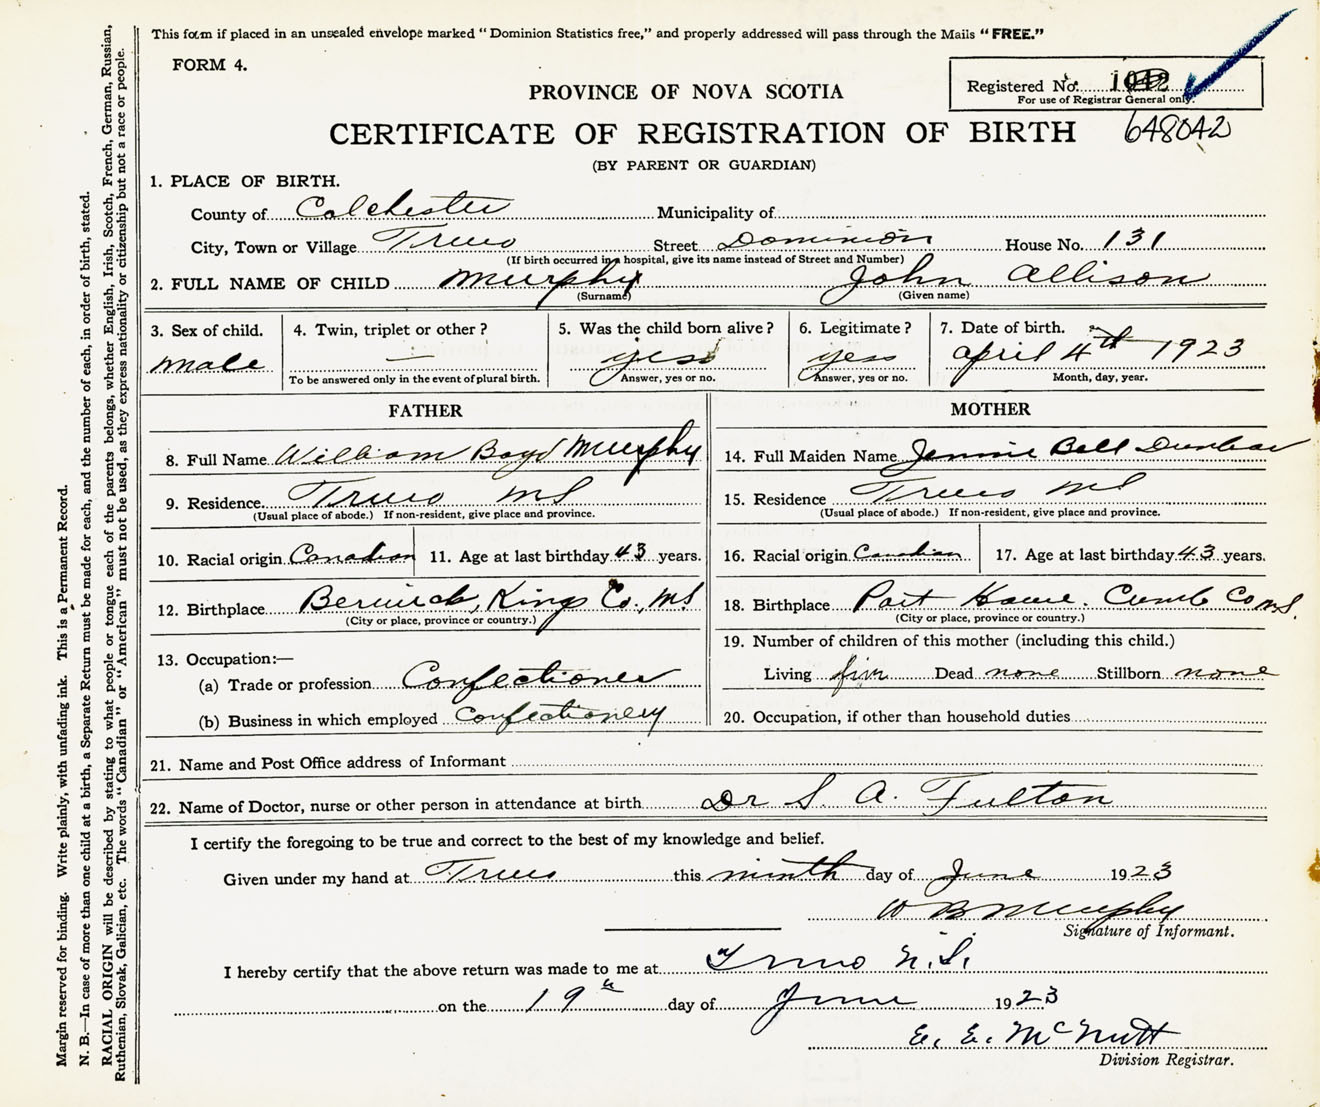 This form if placed in an unsealed envelope marked "Dominion Statistics free," and properly addressed will pass through the Mails "FREE."
FORM 4.
Registered No.
For use of Registrar General only.
PROVINCE OF NOVA SCOTIA
CERTIFICATE OF REGISTRATION OF BIRTH 648042
(BY PARENT OR GUARDIAN)
1. PLACE OF BIRTH.
County of Colchester Municipality of
City, Town or Village Truro Street Dominion House No. 131
(If birth occurred in a hospital, give its name instead of Street and Number)
2. FULL NAME OF CHILD Murphy John Allison
(Surname) (Given name)
3. Sex of child. 4. Twin, triplet or other? 5. Was the child born alive? 6. Legitimate? 7. Date of birth.
male — yes yes April 4th 1923
To be answered only in the event of plural birth. Answer, yes or no. Answer, yes or no. Month, day, year.
FATHER MOTHER
8. Full Name William Boyd Murphy 14. Full Maiden Name Jennie Bell Dunbar
9. Residence Truro NS 15. Residence Truro NS
(Usual place of abode.) If non-resident, give place and province. (Usual place of abode.) If non-resident, give place and province.
10. Racial origin Canadian 11. Age at last birthday 43 years. 16. Racial origin Canadian 17. Age at last birthday 43 years.
12. Birthplace Berwick, Kings Co., NS 18. Birthplace Port Howe. Cumb Co N.S.
(City or place, province or country.) (City or place, province or country.)
19. Number of children of this mother (including this child.)
13. Occupation:—
(a) Trade or profession Confectioner Living five Dead none Stillborn none
(b) Business in which employed Confectionery 20. Occupation, if other than household duties
21. Name and Post Office address of Informant
22. Name of Doctor, nurse or other person in attendance at birth Dr S. A. Fulton
I certify the foregoing to be true and correct to the best of my knowledge and belief.
Given under my hand at Truro this ninth day of June 1923
W B Murphy
Signature of Informant.
I hereby certify that the above return was made to me at Truro N.S.
on the 19th day of June 1923
E. E. McNutt
Division Registrar.
Margin reserved for binding. Write plainly, with unfading ink. This is a Permanent Record.
N. B.—In case of more than one child at a birth, a Separate Return must be made for each, and the number of each, in order of birth, stated.
RACIAL ORIGIN will be described by stating to what people or tongue each of the parents belongs, whether English, Irish, Scotch, French, German, Russian,
Ruthenian, Slovak, Galician, etc. The words "Canadian" or "American" must not be used, as they express nationality or citizenship but not a race or people.